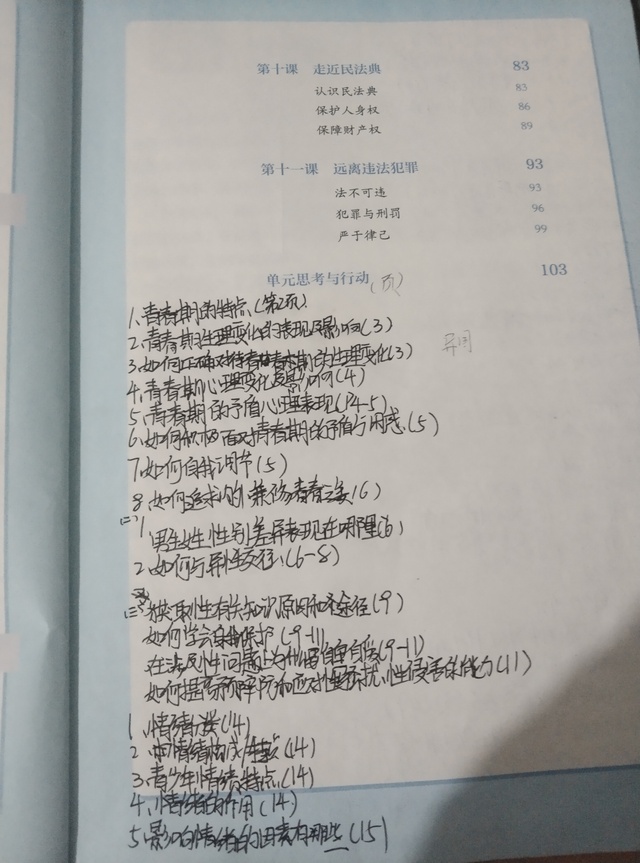 第十课 走近民法典 83
认识民法典 83
保护人身权 86
保障财产权 89
第十一课 远离违法犯罪 93
法不可违 93
犯罪与刑罚 96
严于律己 99
单元思考与行动 103
(页)
1、青春期的特点、(第2页)
2、青春期生理变化的表现及影响(3)
3、如何正确对待青春期的生理变化(3)
异同
4、青春期心理变化及影响(4)
5、青春期的矛盾心理表现(P4-5)
6、如何积极面对青春期的矛盾与困惑(5)
7如何自我调节(5)
8如何追求青春之美(6)
(二)1
男生女生性别差异表现在哪里(6)
2如何与异性交往(6-8)
获取性有关知识原因和途径(9)
如何学会自我保护(9-11)
在涉及性问题上为什么要自尊自爱(9-11)
如何提高预防和应对性骚扰、性侵害的能力(11)
1、情绪分类(14)
2、(14)
3、青少年情绪特点(14)
4、情绪的作用(14)
5、影响情绪的因素有哪些(15)